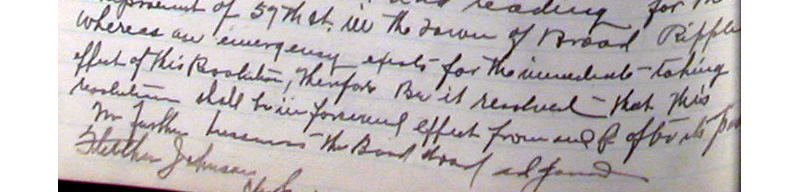 and reading for the
improvement of 59th st. in the Town of Broad Ripple
Whereas an emergency exists for the immediate taking
effect of this Resolution, therefore Be it resolved that this
resolution shall be in force and effect from and after its
No further business the Board stood adjourned
Fletcher Johnson